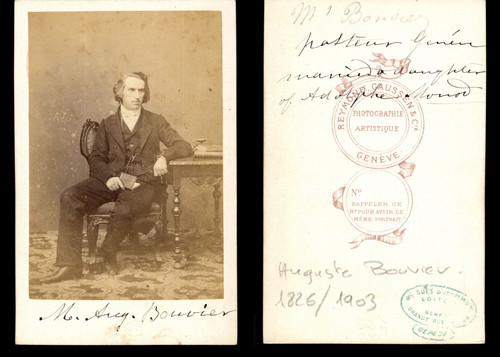 M. Aug. Bouvier
Mr Bouvier
pasteur Genèv
married a daughter
of Adolphe Monod
REYMOND GAUSSEN & Cie
PHOTOGRAPHIE
ARTISTIQUE
GENÈVE
No
RAPPELER CE
No POUR AVOIR LE
MÊME PORTRAIT
Auguste Bouvier.
1826/1903
GRANDE RUE